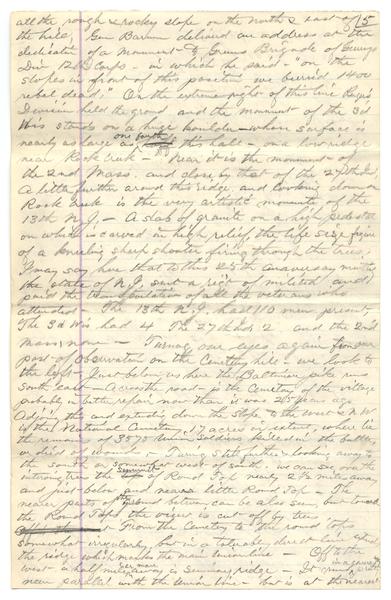 all the rough & rocky slope on the North & east of 15
the hill, Gen Barnum delivered an address at the
dedication of a Monument of Greens Brigade of Gearys
Div 12th Corps - in which he said - "on the
slopes in front of this position we burried 1400
rebel dead." On the extreme right of this line
Division held the ground and the monument of the 3d
Wis stands on a huge boulder - whose surface is
nearly as large as one fourth this hall - on a low ridge
near Rock Creek - Near it is the monument of
the 2nd Mass. and close by that of the 27th Ind.
A little further around this ridge, and looking down on
Rock Creek is the very artistic monument of the
13th N.J. - A slab of granite on a high pedestal
on which is carved in high relief, the life size figure
of a kneeling sharp shooter firing through the trees,
I may say here that to this 25th anniversary meeting
the state of N.J. sent a regt of militia and
paid the transportation of all the veterans who
attended. The 13th N.J. had 110 men present,
The 3d Wis had 4 The 27th Ind. 2 and the 2nd
Mass, none - Turning our eyes again from our
post of observation on the Cemetery hill - we look to
the left - Just below us here the Baltimore pike runs
south east - Across the road - is the Cemetery of the village
probably in better repair now than it was 25 years ago
Adjoining this and extending down the slope to the west & N.W.
is the National Cemetery, 17 acres in extent, where lie
the remains of 3575 Union Soldiers killed in the battle,
or died of wounds - Turning still further & looking away to
the south or somewhat west of south, we can see over the
intervening trees the summit of Round Top nearly 2½ miles away,
and just below and nearer little Round Top - The
nearer part of the ground below can be also seen, but toward
the Round Tops the view is cut off by trees
From the Cemetery to the round tops
somewhat irregularly but in a tolerable direct line is
the ridge which makes the main Union line - Off to the
west a half mile or more away is Seminary ridge - It runs in a general way
near parallel with the Union line - but is at the nearest